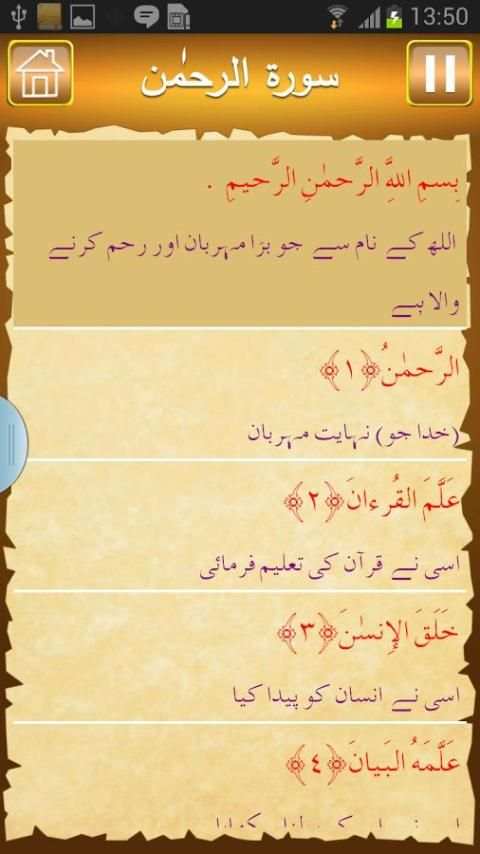 13:50
سورة الرحمٰن
بِسمِ اللهَِّ الرَّحمٰنِ الرَّحيمِ .
اللھ کے نام سے جو بڑا مہربان اور رحم کرنے
والا ہے
الرَّحمٰنُ﴿١﴾
(خدا جو) نہایت مہربان
عَلَّمَ القُرءانَ﴿٢﴾
اسی نے قرآن کی تعلیم فرمائی
خَلَقَ الإِنسٰنَ﴿٣﴾
اسی نے انسان کو پیدا کیا
عَلَّمَهُ البَيانَ﴿٤﴾